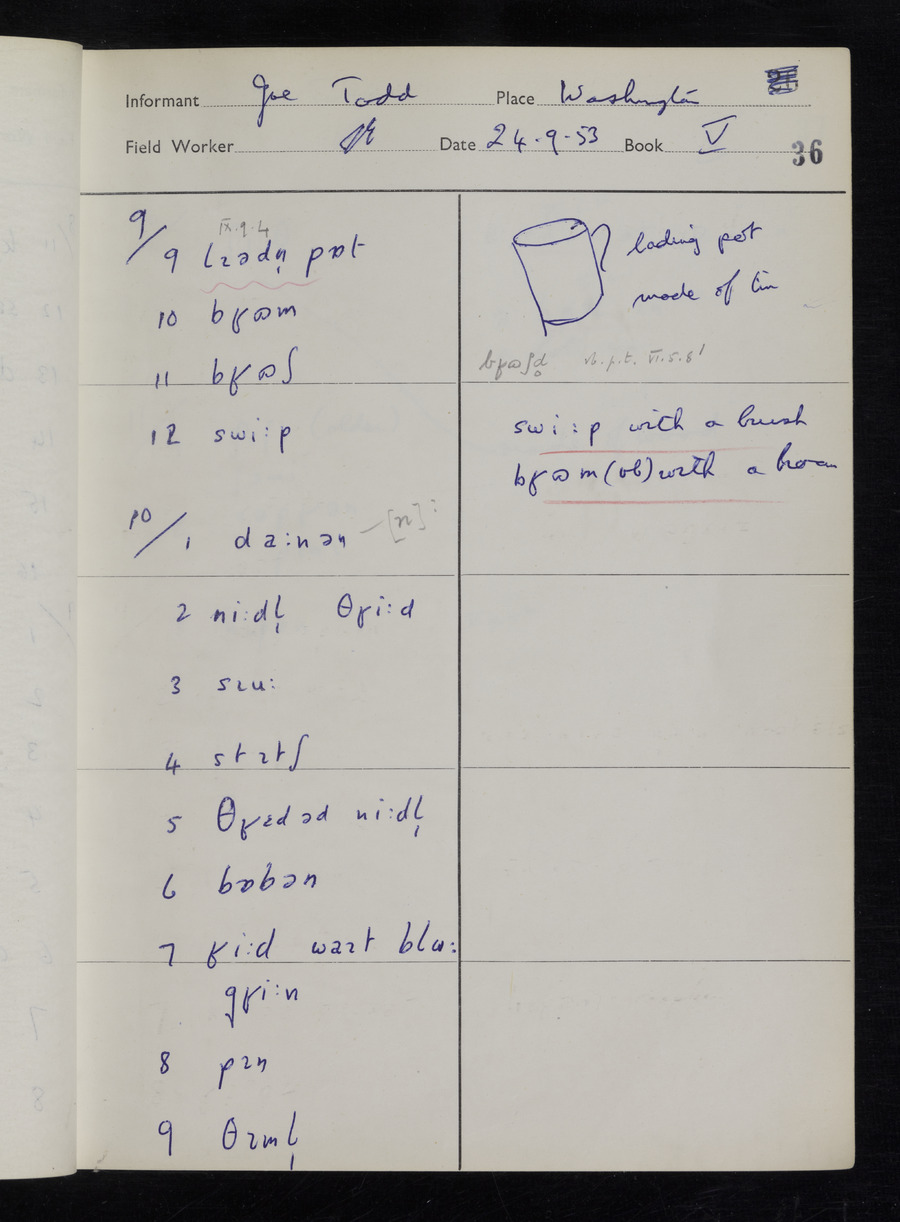 Informant Joe Todd Place Washington
Field Worker Date 24.9.53 Book V
36
9/
IX.9.4
9 lɪədn̩ pɒt
lading pot
made of tin
10 bʁʊm
11 bʁʊʃ
bʁʊʃd̥ vb. p.t. VI.5.8'
12 swi:p
swi:p with a brush
bʁʊm (vb) with a broom
10/
1 da:nən –[n]
2 ni:dl̩ θʁi:d
3 sɪu:
4 stɪtʃ
5 θʁɛdəd ni:dl̩
6 bɒbən
7 ʁi:d waɪt blu:
gʁi:n
8 pɪn
9 θɪml̩